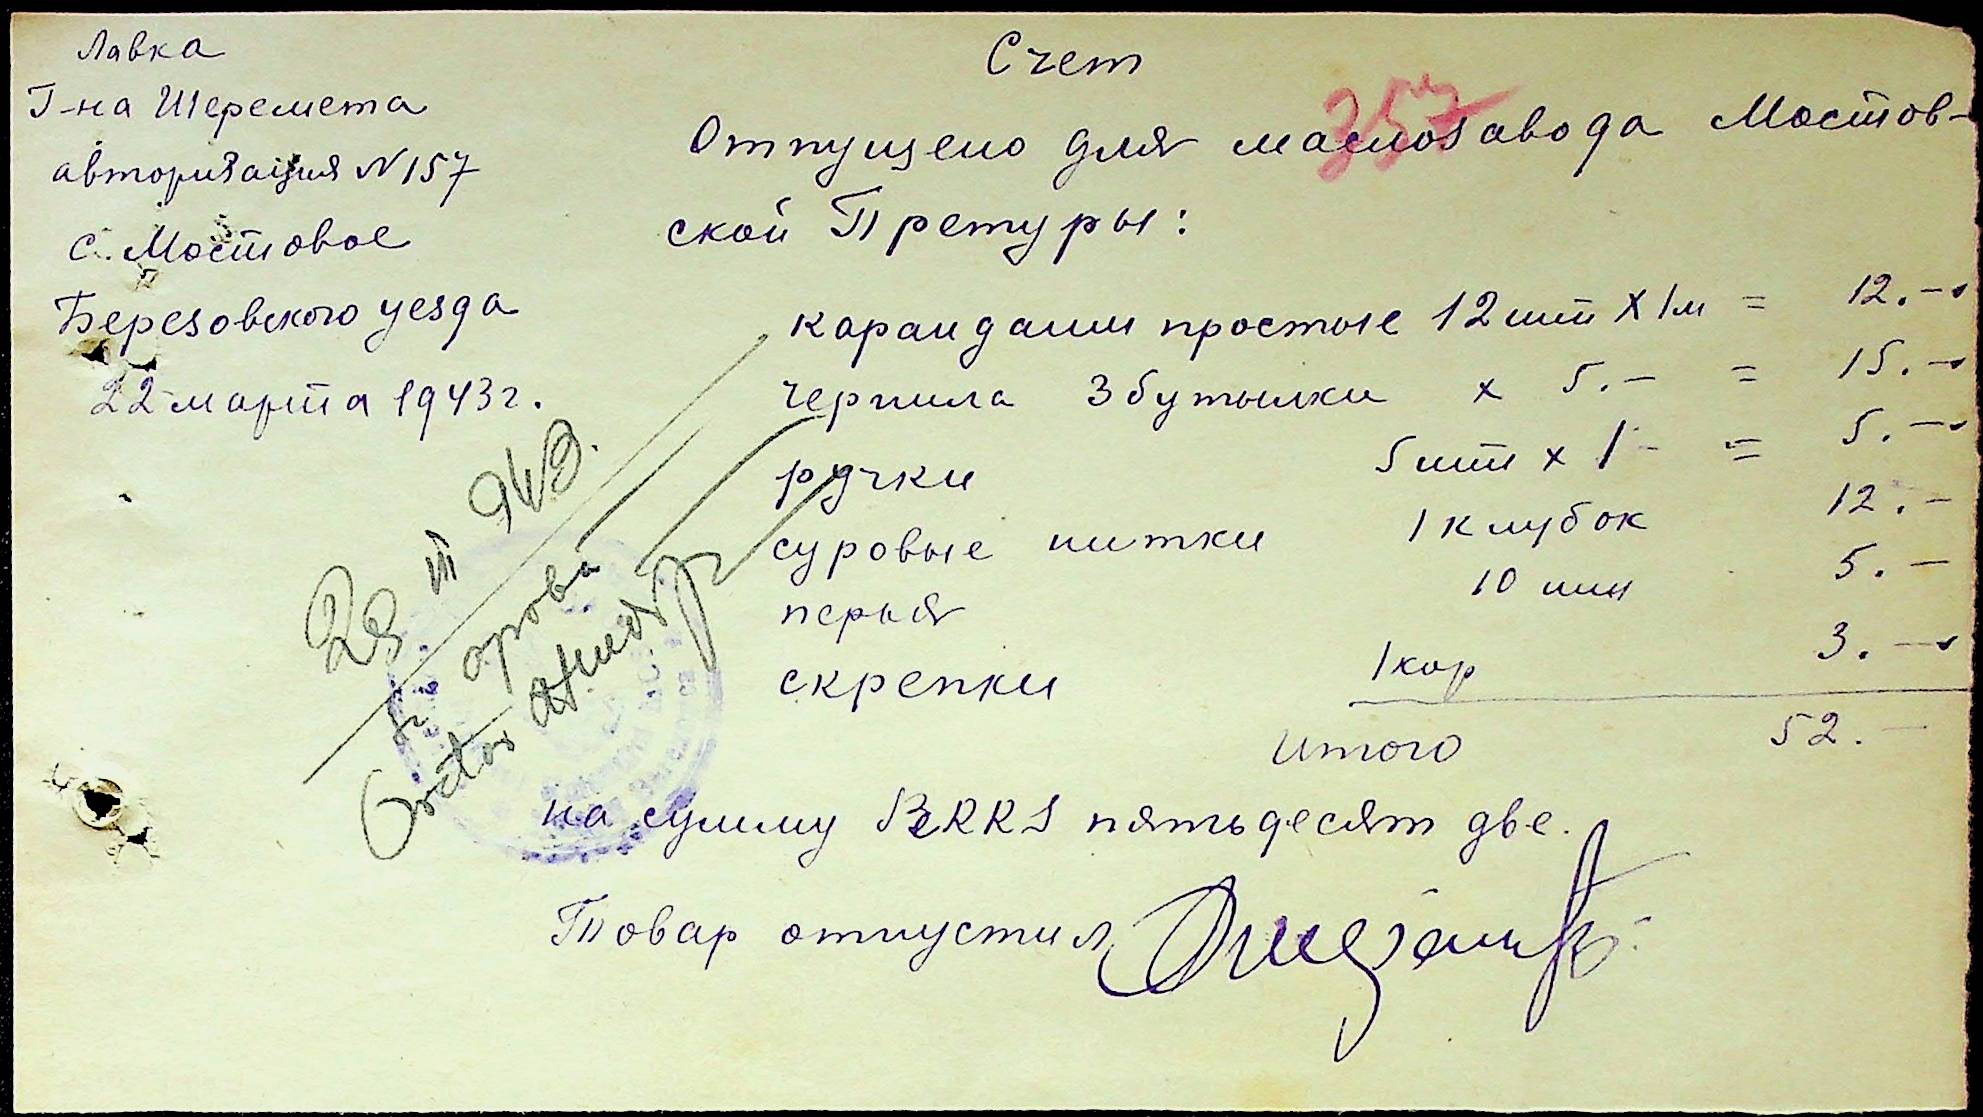 Лавка
Г-на Шеремета
авторизация N 157
с. Мостовое
Березовского уезда
22 марта 1943 г.
Счет
357
Отпущено для маслозавода Мостов-
ской Претуры:
карандаши простые 12 шт X 1м = 12.-
чернила 3 бутылки x 5.- = 15.-
ручки 5 шт x 1- = 5.-
суровые нитки 1 клубок 12.-
перья 10 шт 5.-
скрепки 1 кор 3.-
итого 52.-
на сумму RKKS пятьдесят две.
Товар отпустил
III 943.